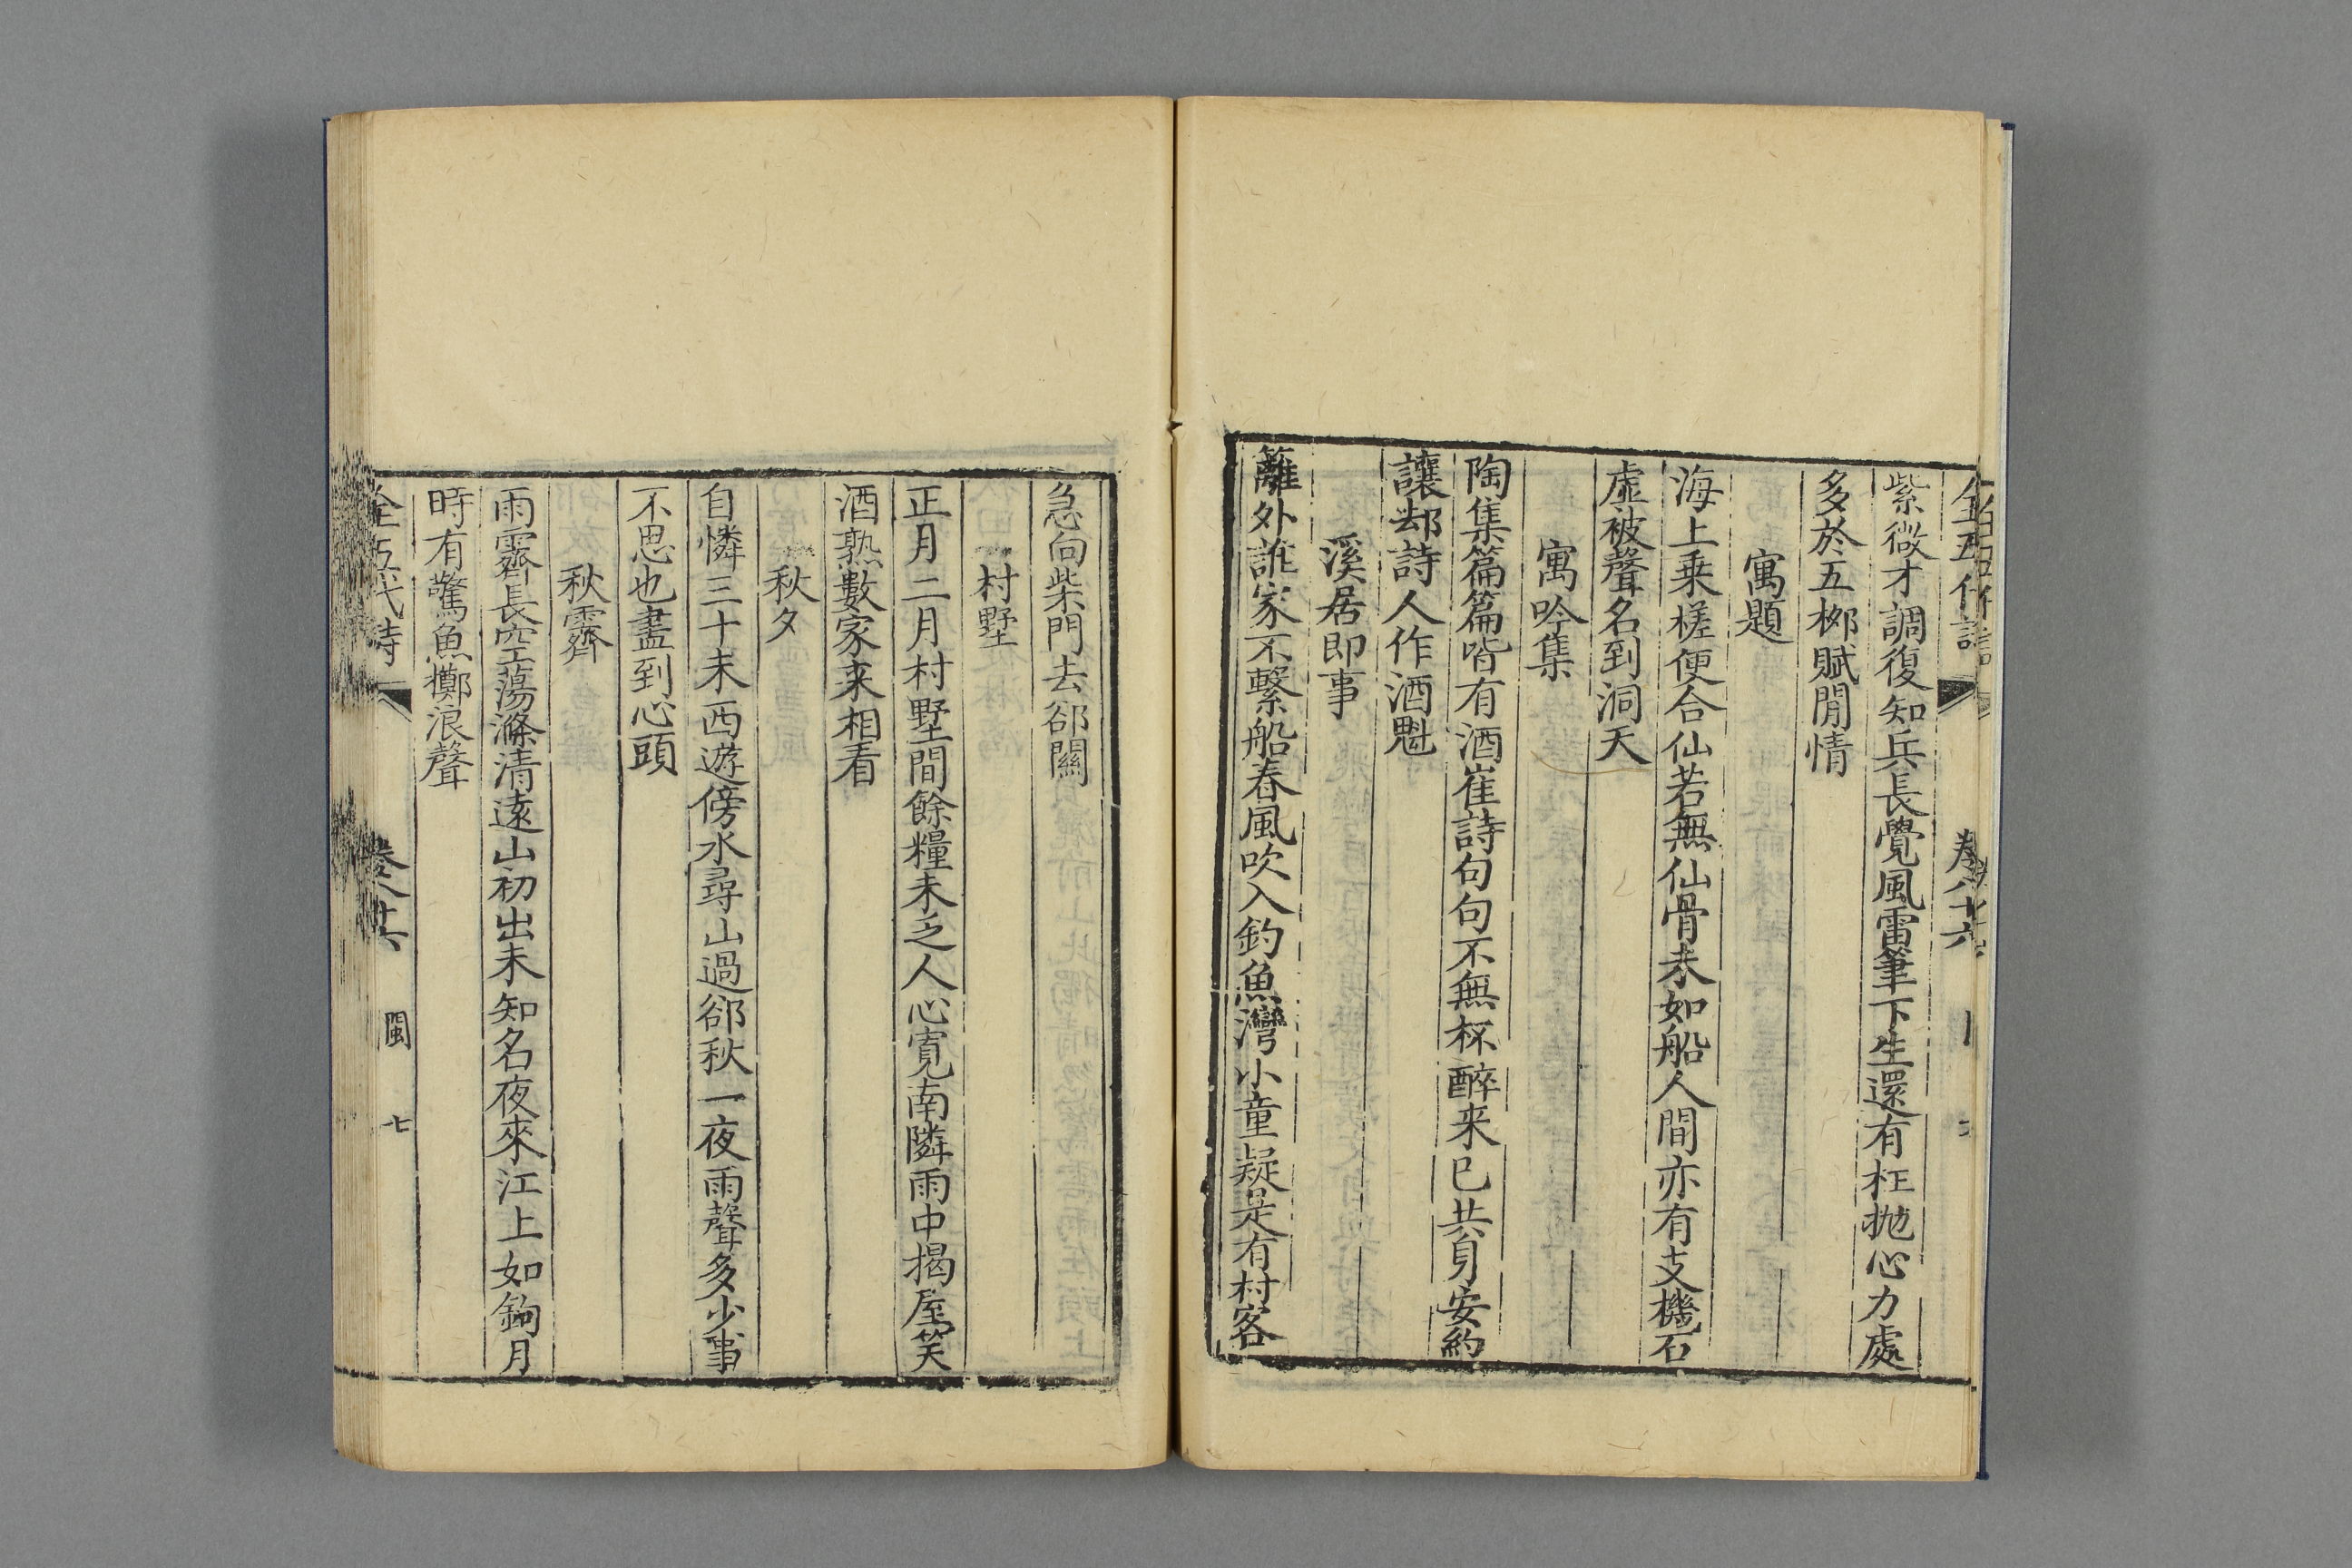 紫微才調復知兵長覺風雷筆下生還有枉抛心力處
多於五栁賦閒情
寓題
海上乗槎便合仙若無仙骨未如船人間亦有支機石
虛被聲名到洞天
寓吟集
陶集篇篇皆有酒崔詩句句不無杯醉来已共身安約
讓却詩人作酒魁
溪居即事
籬外誰家不繫船春風吹入釣魚灣小童疑是有村客
急向柴門去郤關
村墅
正月二月村墅間餘糧未乏人心寛南隣雨中揭屋笑
酒熟數家来相看
秋夕
自憐三十未西遊傍水尋山過郤秋一夜雨聲多少事
不思也盡到心頭
秋霽
雨霽長空蕩滌清遠山初出未知名夜來江上如鉤月
時有驚魚擲浪聲
全五代詩 卷八十六 閩 七